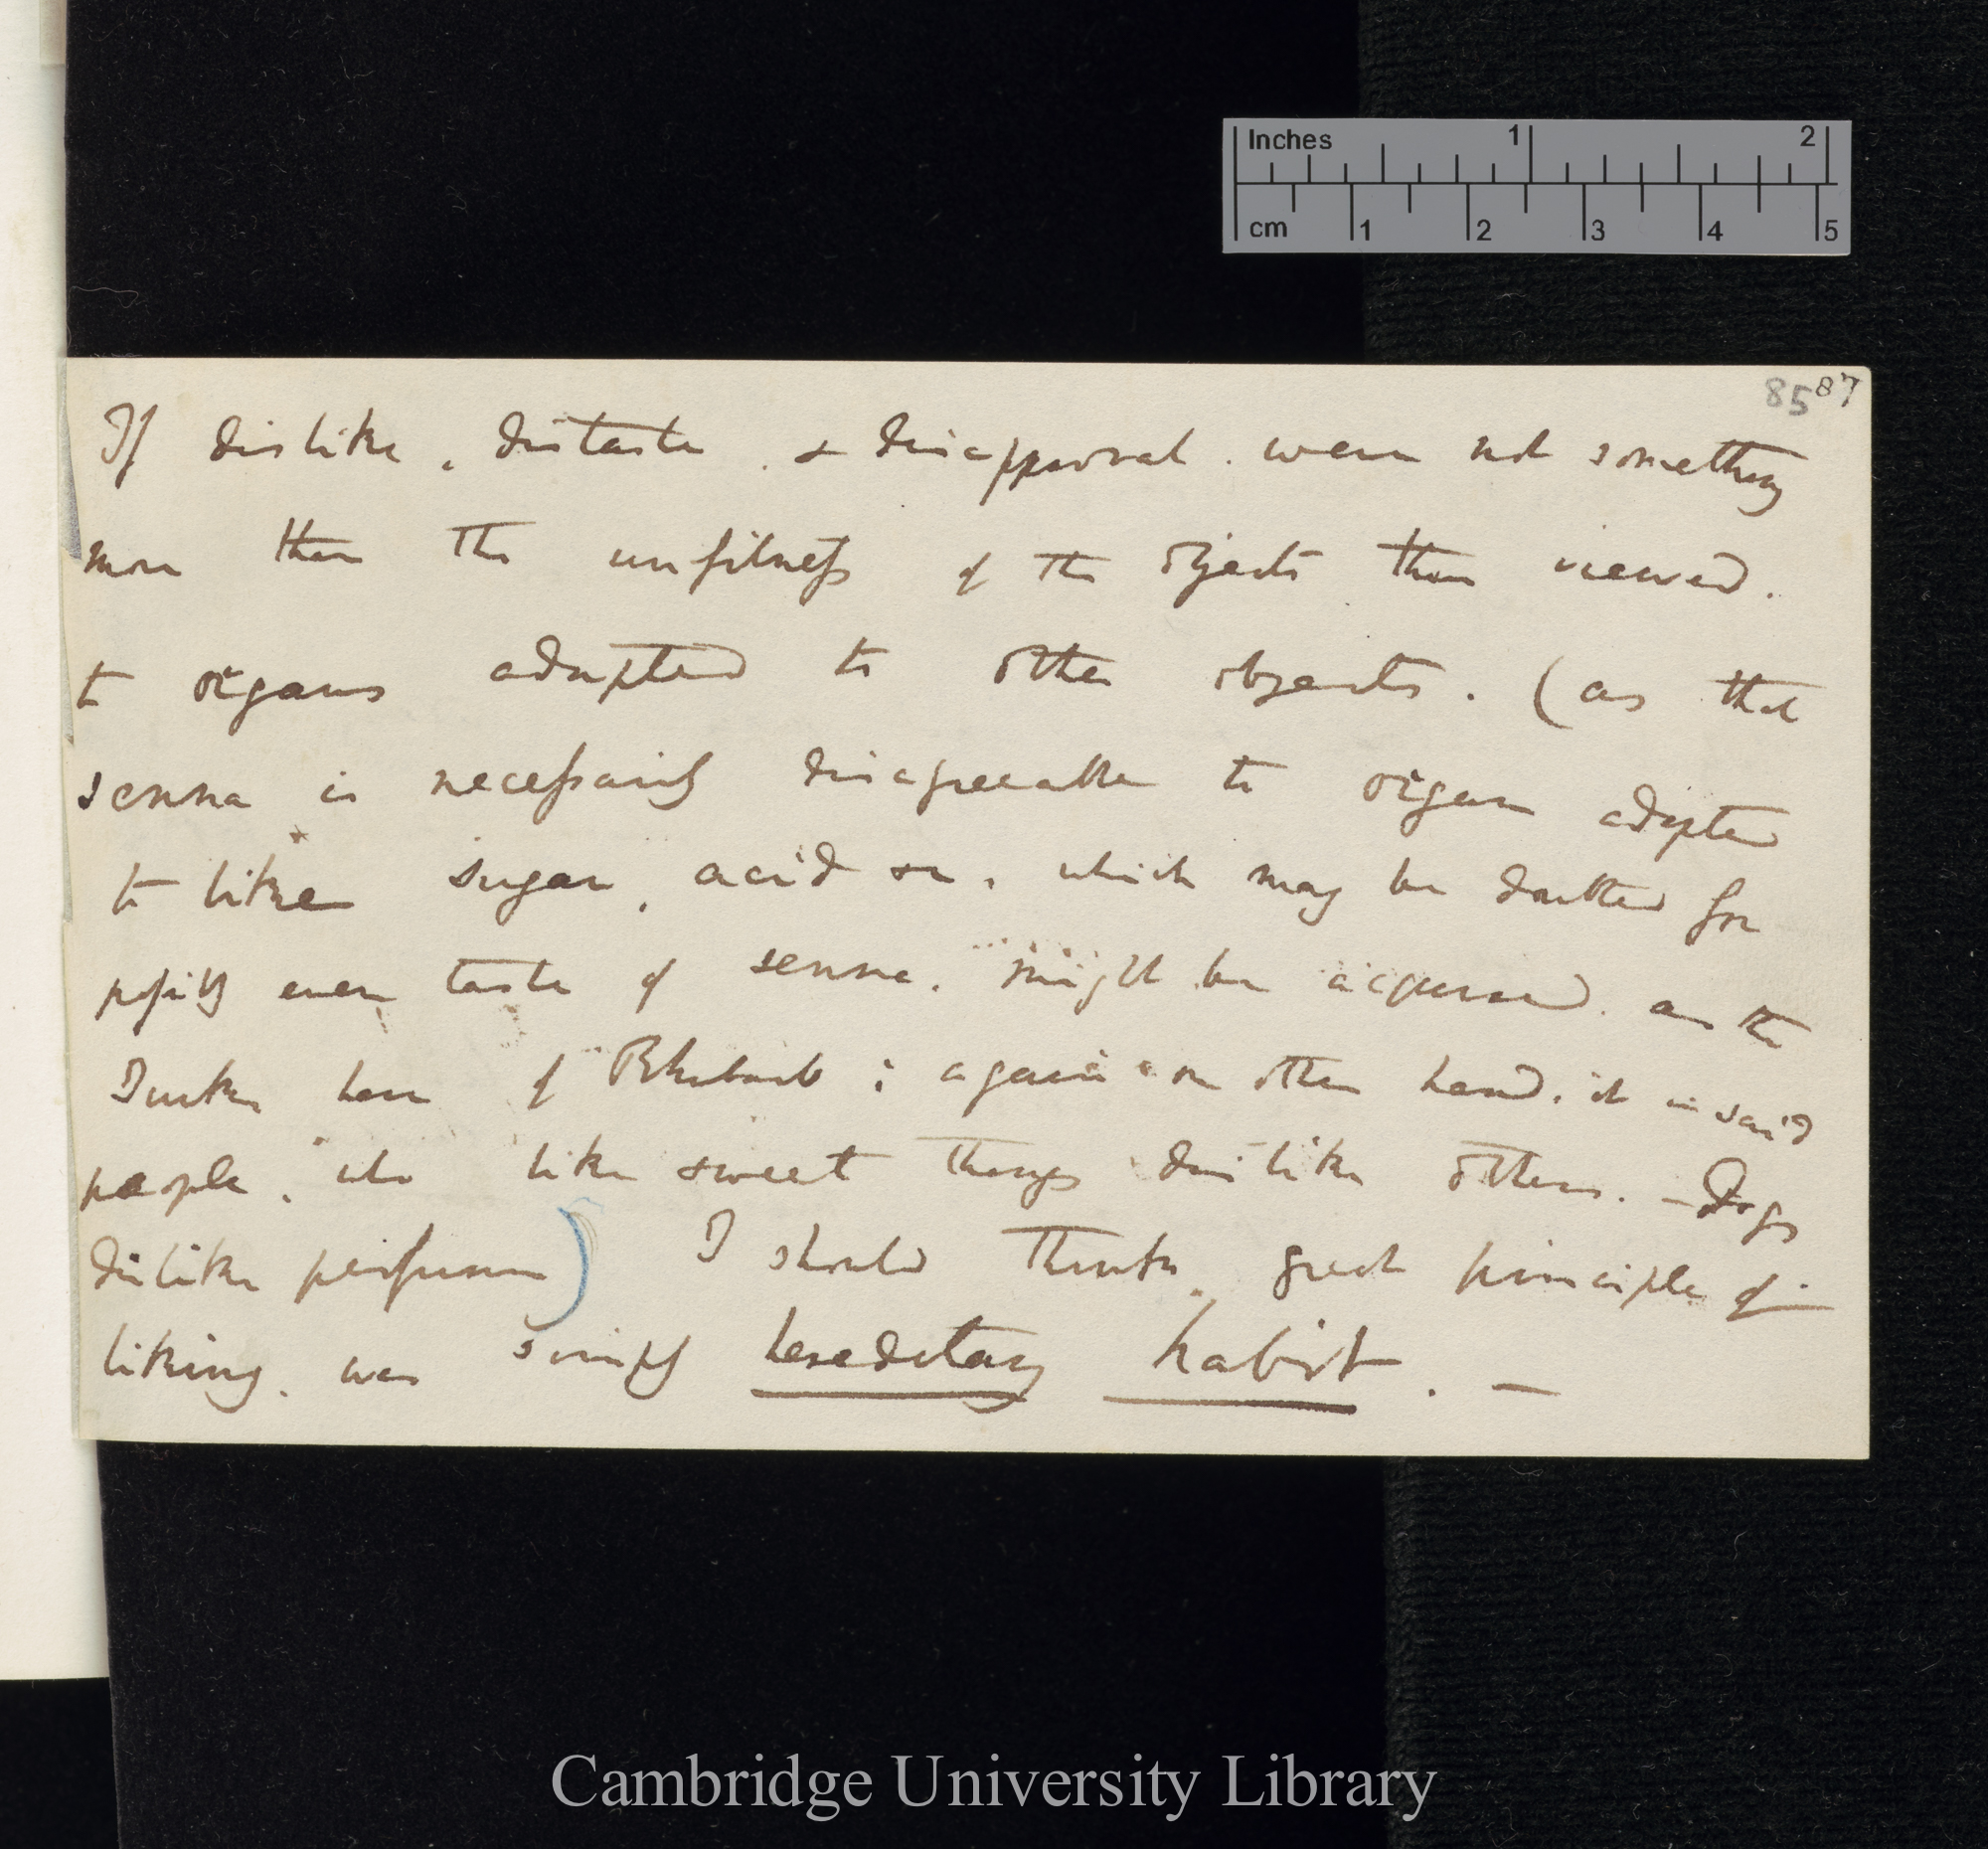 Inches 1 2
cm 1 2 3 4 5
85 87
If dislike, distaste, & disapproval. were not something
more than the unfitness of the objects then viewed.
to organs adapted to other objects. (as that
senna is necessarily disagreeable to organ adapted
to like sugar, acid &c, which may be doubted for
possibly even taste of senna. might be acquired. as the
Turks have of Rhubarb; again on other hand, it is said
people, who like sweet things dislike others. — Dogs
dislike perfumes) I should think, great principle of
liking, was simply hereditary habit. —
Cambridge University Library